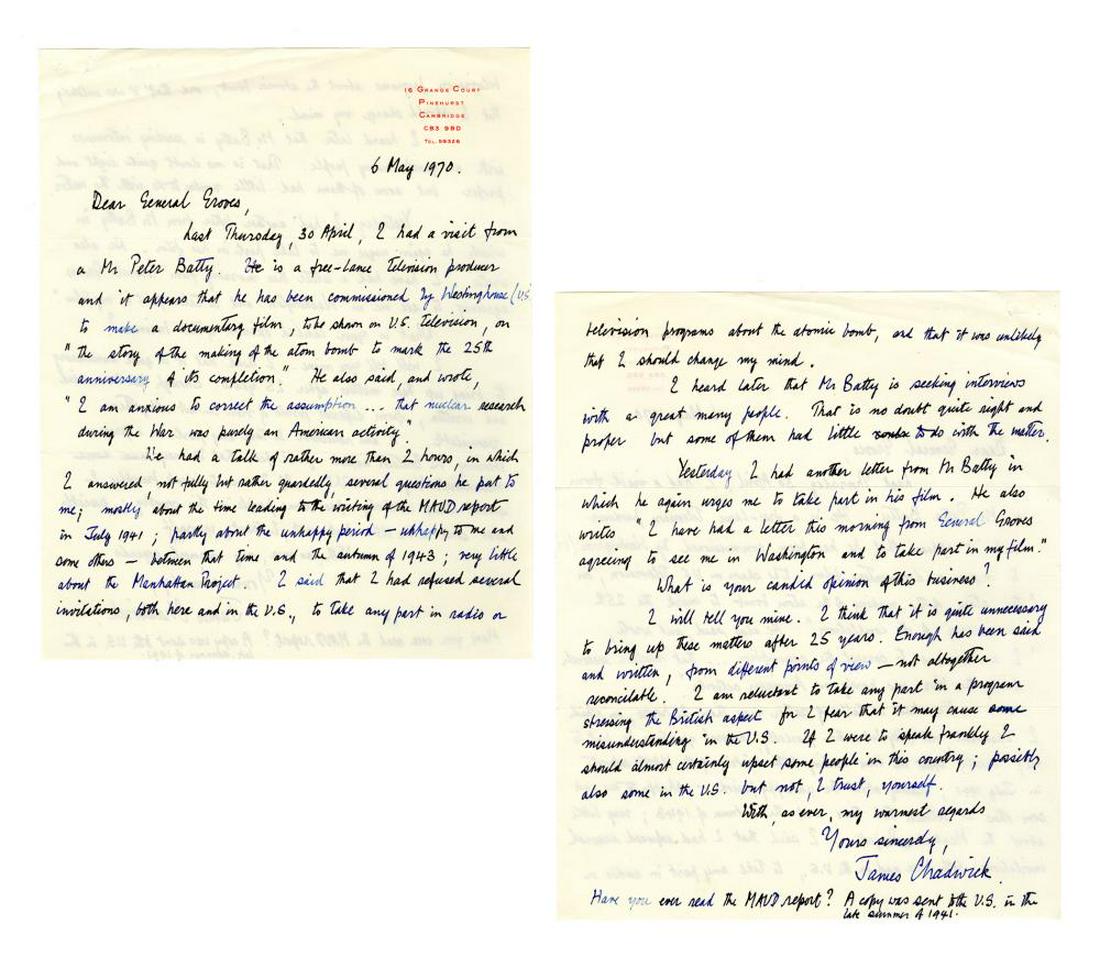 16 GRANGE COURT
PINEHURST
CAMBRIDGE
CB3 9BD
TEL. 59326
6 May 1970.
Dear General Groves,
Last Thursday, 30 April, I had a visit from
a Mr Peter Batty. He is a free-lance television producer
and it appears that he has been commissioned by Westinghouse (U.S.
to make a documentary film, to be shown on U.S. television, on
"the story of the making of the atom bomb to mark the 25th
anniversary of its completion." He also said, and wrote,
"I am anxious to correct the assumption ... that nuclear research
during the War was purely an American activity".
We had a talk of rather more than 2 hours, in which
I answered, not fully but rather guardedly, several questions he put to
me; mostly about the time leading to the writing of the MAUD report
in July 1941; partly about the unhappy period – unhappy to me and
some others – between that time and the autumn of 1943; very little
about the Manhattan Project. I said that I had refused several
invitations, both here and in the U.S., to take any part in radio or
television programs about the atomic bomb, and that it was unlikely
that I should change my mind.
I heard later that Mr Batty is seeking interviews
with a great many people. That is no doubt quite right and
proper but some of them had little to do with the matter.
Yesterday I had another letter from Mr Batty in
which he again urges me to take part in his film. He also
writes "I have had a letter this morning from General Groves
agreeing to see me in Washington and to take part in my film."
What is your candid opinion of this business?
I will tell you mine. I think that it is quite unnecessary
to bring up these matters after 25 years. Enough has been said
and written, from different points of view – not altogether
reconcilable. I am reluctant to take any part in a program
stressing the British aspect for I fear that it may cause some
misunderstanding in the U.S. If I were to speak frankly I
should almost certainly upset some people in this country; possibly
also some in the U.S. but not, I trust, yourself.
With, as ever, my warmest regards
Yours sincerely,
James Chadwick.
Have you ever read the MAUD report? A copy was sent to the U.S. in the
late summer of 1941.